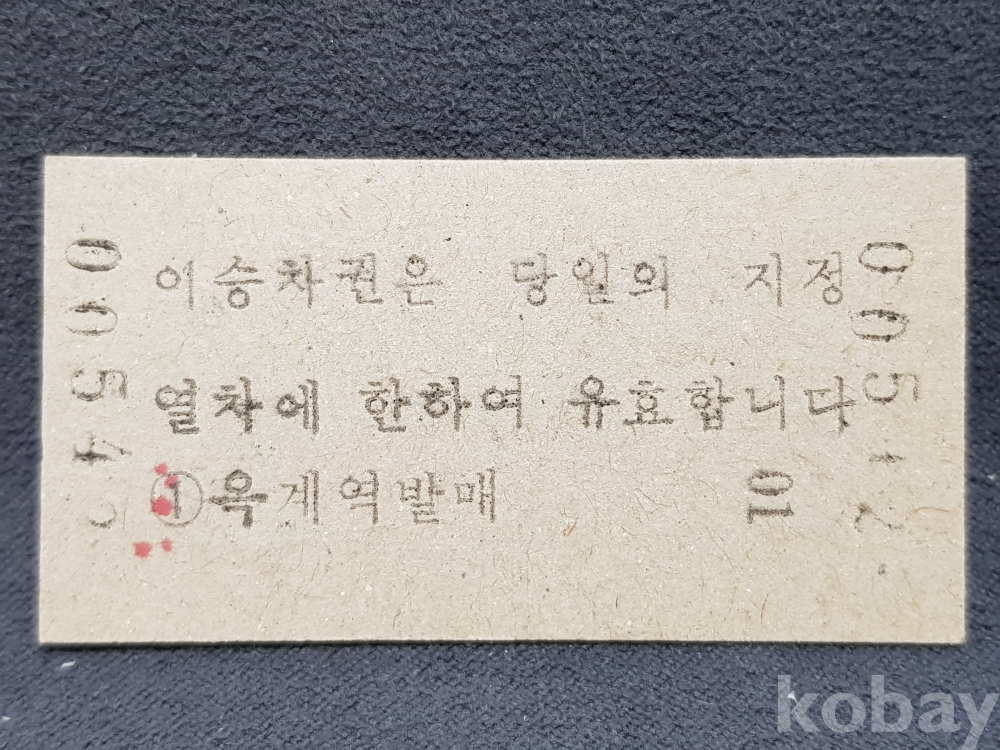 이승차권은 당일의 지정
열차에 한하여 유효합니다
① 옥계역발매
10
kobay